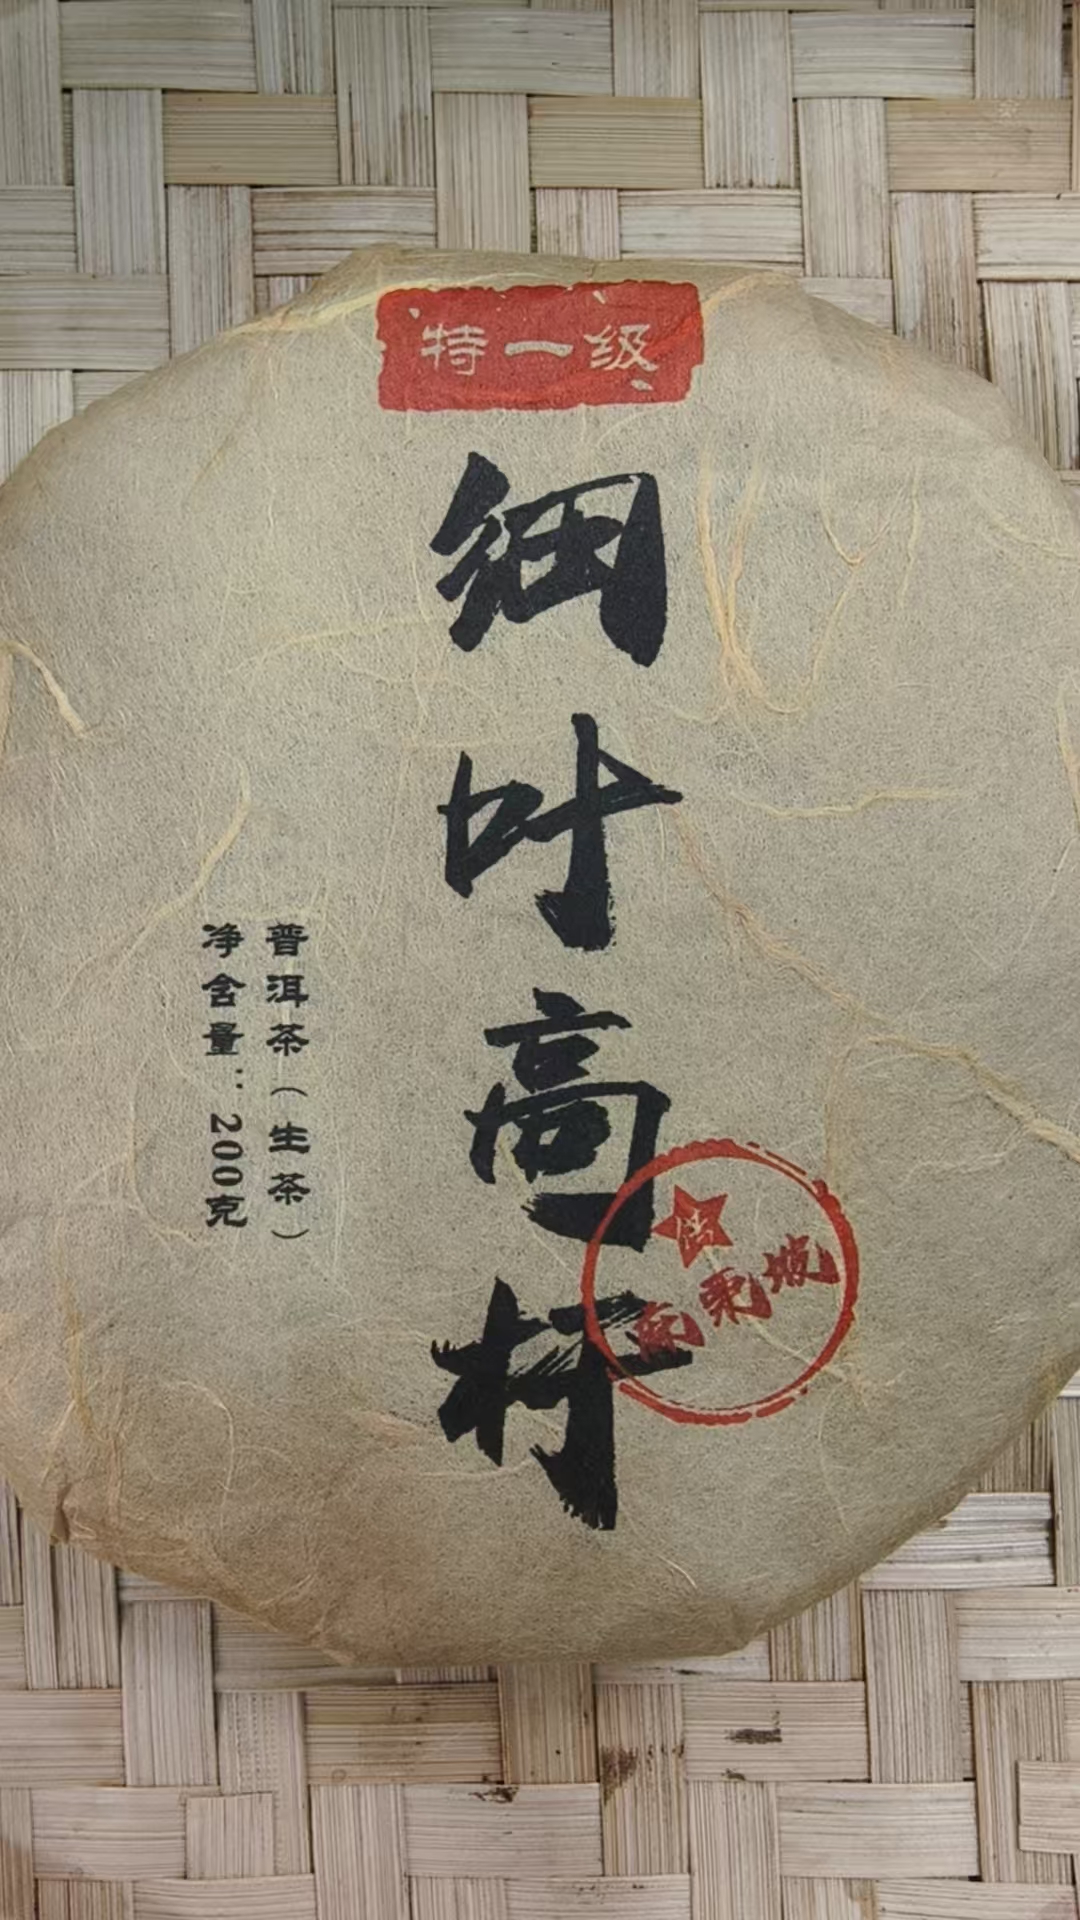 特一级
细叶高杆
普洱茶（生茶）
净含量：200克